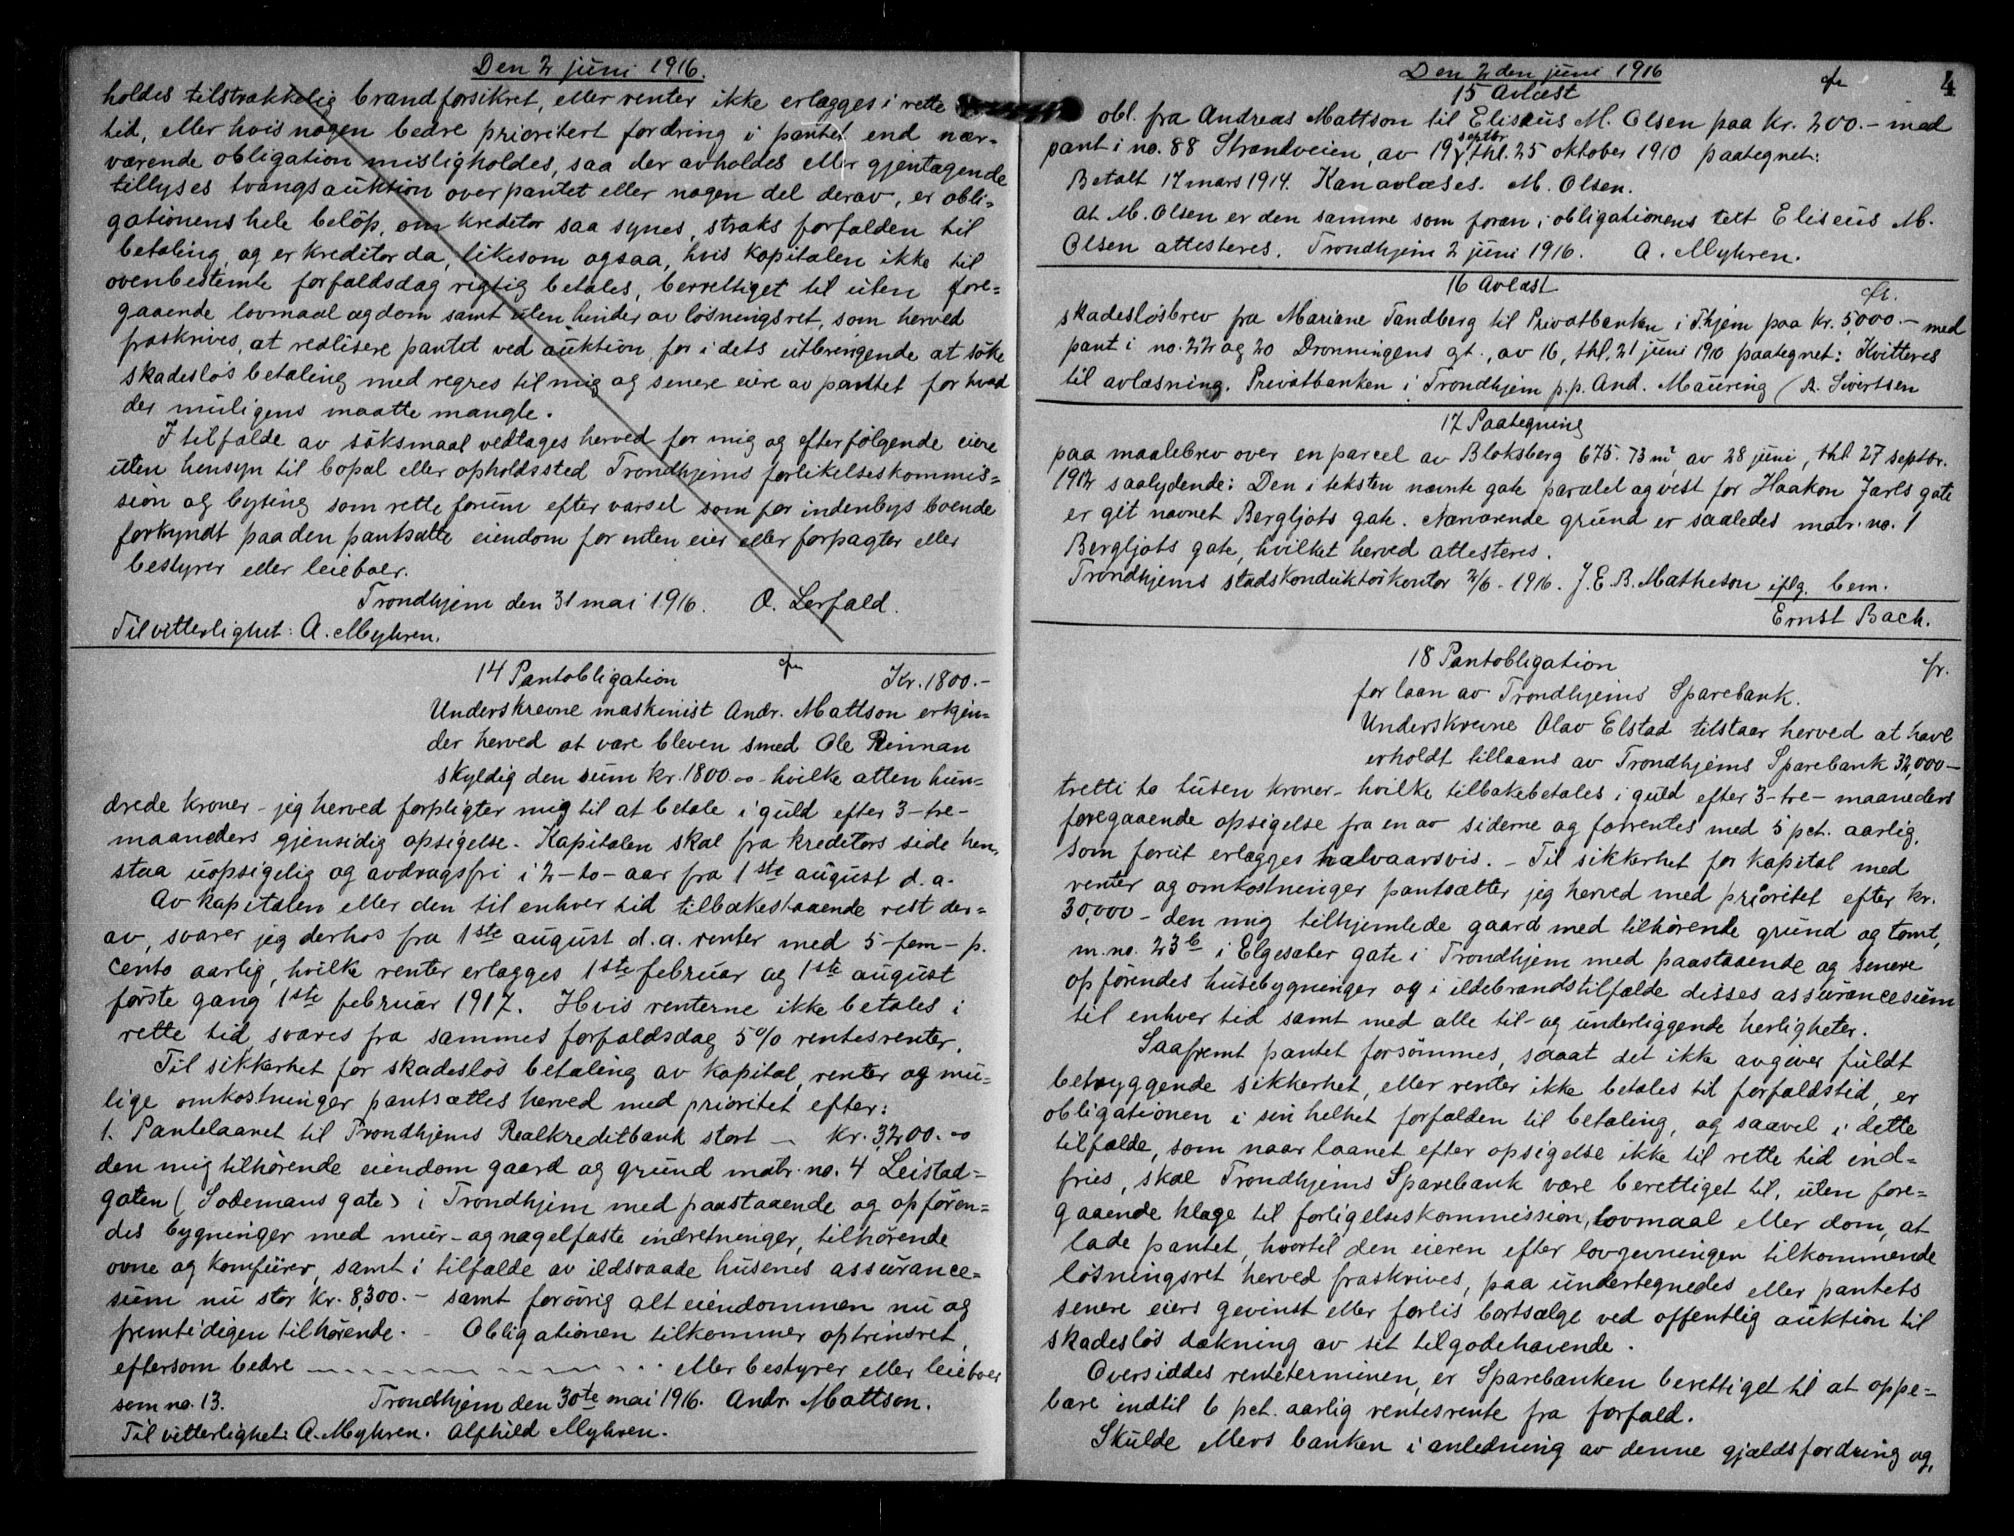 Den 2 juni 1916.
holdes tilstrækkelig brandforsikret, eller renter ikke erlægges i rette
tid, eller hvis nogen bedre prioritert fordring i pantet end nær-
værende obligation misligholdes, saa der avholdes eller gjentagende
tillyses tvangsauktion over pantet eller nogen del derav, er obli-
gationens hele beløp, om kreditor saa synes, straks forfalden til
betaling, og er kreditor da, likesom ogsaa, hvis kapitalen ikke til
ovenbestemte forfaldsdag rigtig betales, berettiget til uten fore-
gaaende lovmaal og dom samt uten hinder av løsningsret, som herved
fraskrives, at realisere pantet ved auktion, for i dets utbringende at søke
skadesløs betaling med regres til mig og senere eiere av pantet for hvad
der muligens maatte mangle.
I tilfælde av søksmaal vedtages herved for mig og efterfølgende eiere
uten hensyn til bopæl eller opholdssted Trondhjems forlikelseskommis-
sion og byting som rette forum efter varsel som for indenbys boende
forkyndt paa den pantsatte eiendom for enten eier eller forpagter eller
bestyrer eller leieboer.
Trondhjem den 31 mai 1916. O. Lerfald.
Til vitterlighet: A. Myhren.
14 Pantobligation Kr. 1800.-
Underskrevne maskinist Andr. Mattson erkjen-
der herved at være bleven smed Ole Rinnan
skyldig den sum kr. 1800.00 - hvilke atten hun-
drede kroner - jeg herved forpligter mig til at betale i guld efter 3-tre-
maaneders gjensidig opsigelse. Kapitalen skal fra kreditors side hen-
staa uopsigelig og avdragsfri i 2-to-aar fra 1ste august d.a.
Av kapitalen eller den til enhver tid tilbakestaaende rest der-
av, svarer jeg derhos fra 1ste august d.a. renter med 5-fem- p.
cento aarlig, hvilke renter erlægges 1ste februar og 1ste august
første gang 1ste februar 1917. Hvis renterne ikke betales i
rette tid, svares fra sammes forfaldsdag 5% rentesrenter.
Til sikkerhet for skadesløs betaling av kapital, renter og mu-
lige omkostninger pantsættes herved med prioritet efter:
1. Pantelaanet til Trondhjems Realkreditbank stort - kr. 3200.00
den mig tilhørende eiendom gaard og grund matr. no. 4 Leistad-
gaten (Sodemans gate) i Trondhjem med paastaaende og opføren-
des bygninger med mur- og nagelfaste indretninger, tilhørende
ovne og komfurer, samt i tilfælde av ildsvaade husenes assurance-
sum nu stor kr. 8,300.- samt forøvrig alt eiendommen nu og
fremtidigen tilhørende. - Obligationen tilkommer optrinsret
eftersom bedre - - - - - - - eller bestyrer eller leieboer
som no. 13. Trondhjem den 30te mai 1916. Andr. Mattson.
Til vitterlighet: A. Myhren. Alfhild Myhren.
Den 2den juni 1916 4
15 Avlæst
obl. fra Andreas Mattson til Eliseus M. Olsen paa kr. 200.- med
pant i no. 88 Strandveien, av 19 septbr, thl. 25 oktober 1910 paategnet:
Betalt 17 mars 1914. Kan avlæses. M. Olsen.
At M. Olsen er den samme som foran i obligationens tekt Eliseus M.
Olsen attesteres. Trondhjem 2 juni 1916. A. Myhren.
16 Avlæst
skadesløsbrev fra Mariane Tandberg til Privatbanken i Thjem paa kr. 5,000.- med
pant i no. 22 og 20 Dronningens gt., av 16, thl. 21 juni 1910 paategnet: Kvitteres
til avlæsning. Privatbanken i Trondhjem p.p. And. Mauring / A. Sivertsen
17 Paategning
paa maalebrev over en parcel av Bloksberg 675.73 m², av 28 juni, thl 27 septbr.
1912 saalydende: Den i teksten nævnte gate paralel og vest for Haakon Jarls gate
er git navnet Bergljots gate. Nærværende grund er saaledes matr. no. 1
Bergljots gate, hvilket herved attesteres.
Trondhjems stadskonduktørkontor 2/6-1916. J. E. B. Matheson iflg. bem.
Ernst Bach.
18 Pantobligation
for laan av Trondhjems Sparebank.
Underskrevne Olav Elstad tilstaar herved at have
erholdt tillaans av Trondhjems Sparebank 32,000 -
tretti to tusen kroner - hvilke tilbakebetales i guld efter 3-tre-maaneders
foregaaende opsigelse fra en av siderne og forrentes med 5 pct. aarlig,
som forut erlægges halvaarsvis. - Til sikkerhet for kapital med
renter og omkostninger pantsætter jeg herved med prioritet efter kr.
30,000 - den mig tilhjemlede gaard med tilhørende grund og tomt,
m. no. 23b i Elgesæter gate i Trondhjem med paastaaende og senere
opførendes husebygninger og i ildebrandstilfælde disses assurancesum
til enhver tid samt med alle til- og underliggende herligheter.
Saafremt pantet forsømmes, saaat det ikke avgiver fuldt
betryggende sikkerhet, eller renter ikke betales til forfaldstid, er
obligationen i sin helhet forfalden til betaling, og saavel i dette
tilfælde, som naar laanet efter opsigelse ikke til rette tid ind-
fries, skal Trondhjems Sparebank være berettiget til, uten fore-
gaaende klage til forligelseskommission, lovmaal eller dom, at
lade pantet, hvortil den eieren efter lovgivningen tilkommende
løsningsret herved fraskrives, paa undertegnedes eller pantets
senere eiers gevinst eller forlis bortsælge ved offentlig auktion til
skadesløs dækning av sit tilgodehavende.
Oversiddes renteterminen, er Sparebanken berettiget til at oppe-
bære indtil 6 pct. aarlig rentesrente fra forfald.
Skulde ellers banken i anledning av denne gjældsfordring og,